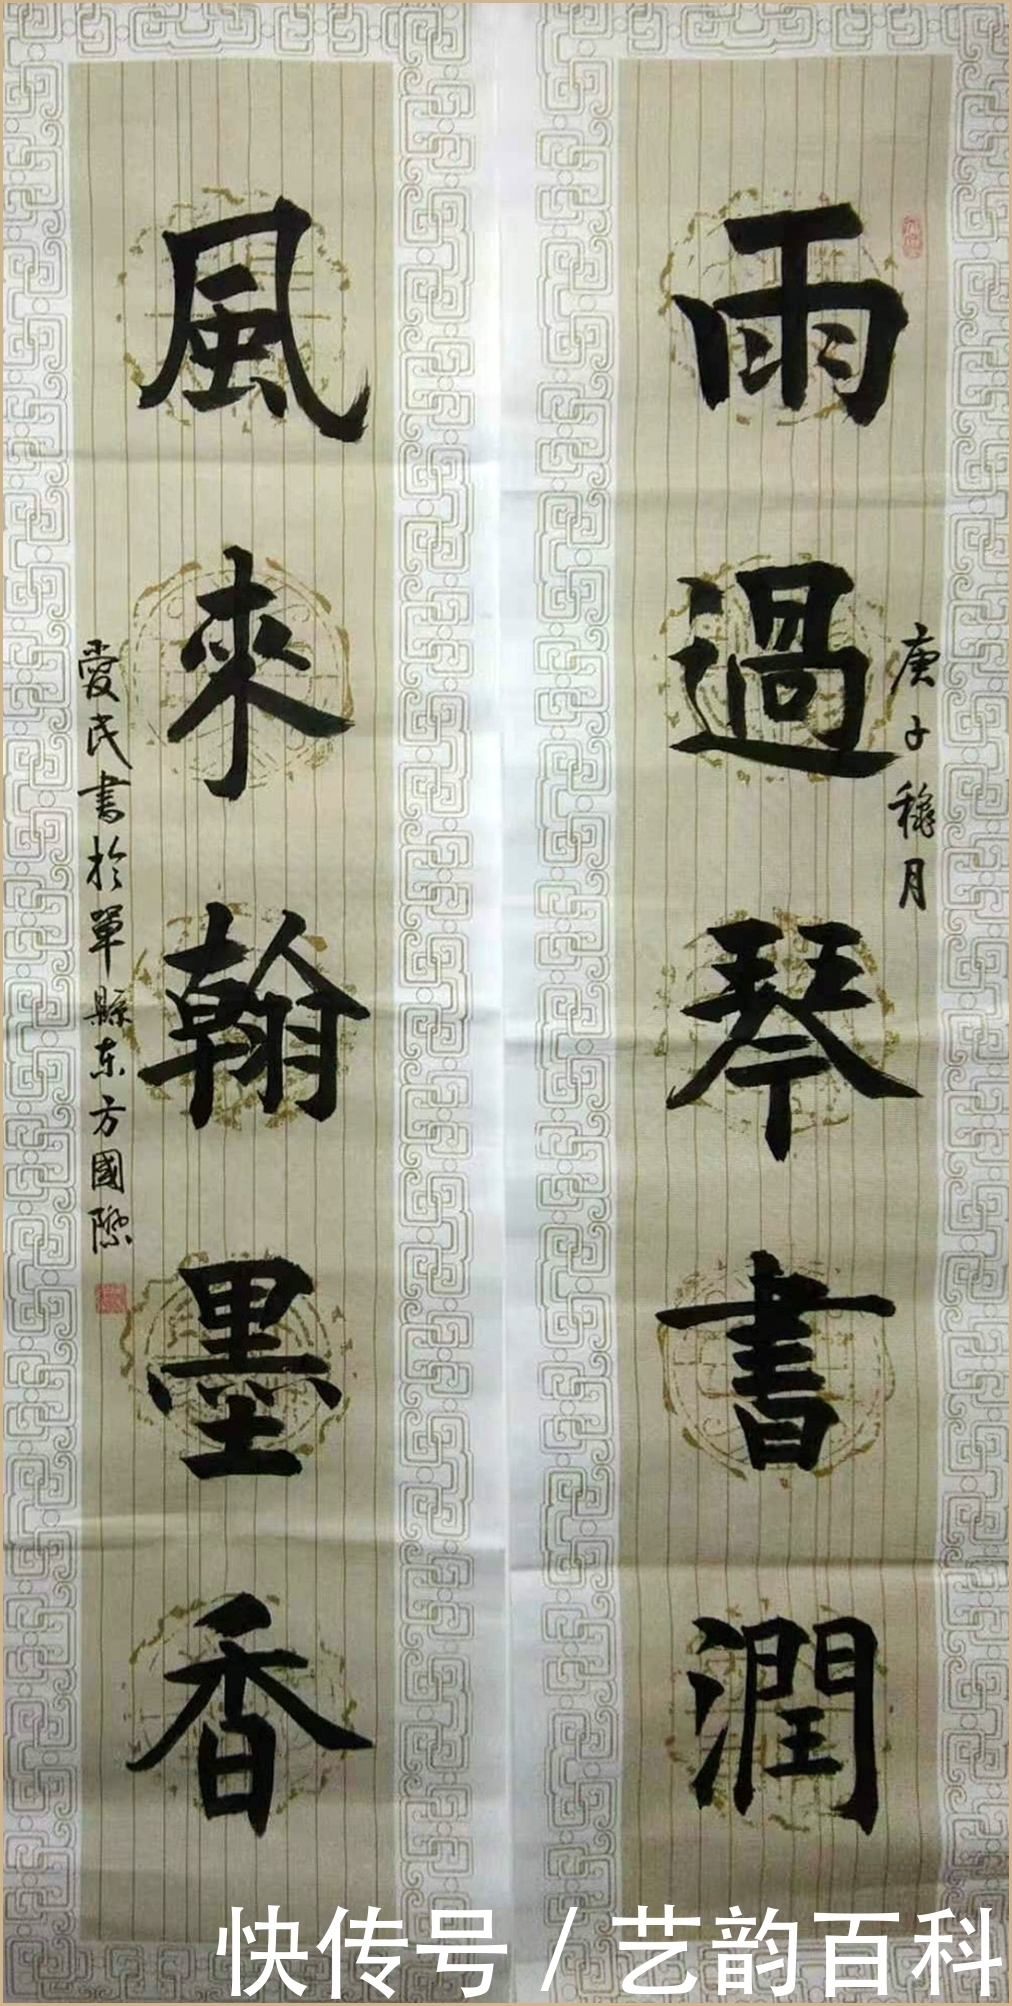 雨過琴書潤
庚子穐月
風來翰墨香
愛民書於單縣东方國際
快传号 / 艺韵百科